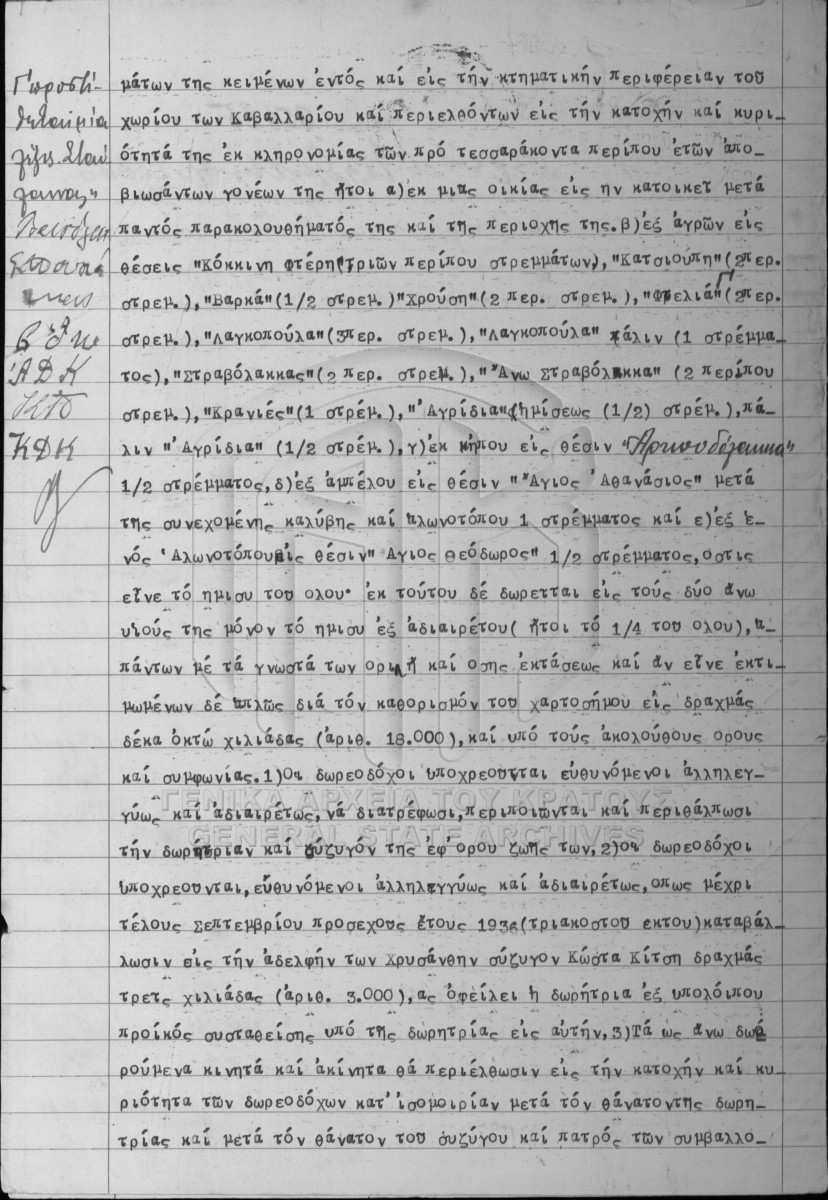 Γ' προστί-
θεται μία
λέξις
μάτων της κειμένων ἐντός καί εἰς τήν κτηματικήν περιφέρειαν του
χωρίου των Καβαλλαρίου καί περιελθόντων εἰς τήν κατοχήν καί κυρι-
ότητά της ἐκ κληρονομίας τῶν πρό τεσσαράκοντα περίπου ἐτῶν ἀπο-
βιωσάντων γονέων της ἤτοι α)ἐκ μιας οικίας εἰς ην κατοικεῖ μετά
παντός παρακολουθήματός της καί τῆς περιοχης της.β)ἐξ ἀγρῶν εἰς
θέσεις "Κόκκινη Φτέρη(τριῶν περίπου στρεμμάτων),"Κατσιούπη"(2περ.
στρεμ.),"Βαρκά"(1/2 στρεμ.)"Χρούση"(2 περ. στρεμ.),"Φτελιά"(2περ.
στρεμ.),"Λαγκοπούλα"(3περ. στρεμ.),"Λαγκοπούλα" πάλιν (1 στρέμμα-
τος),"Στραβόλακκας"(2 περ. στρεμ.),"Ἄνω Στραβόλακκα" (2 περίπου
στρεμ.),"Κρανιές"(1 στρέμ.),"'Αγρίδια"(ἡμίσεως (1/2) στρέμ.),πά-
λιν "'Αγρίδια" (1/2 στρέμ.),γ)ἐκ κήπου εἰς θέσιν
1/2 στρέμματος,δ)ἐξ ἀμπέλου εἰς θέσιν "Ἅγιος 'Αθανάσιος" μετά
της συνεχομένης καλύβης καί ἁλωνοτόπου 1 στρέμματος καί ε)ἐξ ἑ-
νός 'Αλωνοτόπου εἰς θέσιν "Αγιος Θεόδωρος" 1/2 στρέμματος,οστις
εἶνε τό ημισυ του ολου· ἐκ τούτου δέ δωρεῖται εἰς τούς δύο ἄνω
υἱούς της μόνον τό ημισυ ἐξ ἀδιαιρέτου( ἤτοι τό 1/4 του ολου),ἁ-
πάντων μέ τά γνωστά των ορια ἤ καί οσης ἐκτάσεως καί ἄν εἶνε ἐκτι-
μωμένων δέ ἁπλῶς διά τόν καθορισμόν του χαρτοσήμου εἰς δραχμάς
δέκα ὀκτώ χιλιάδας (ἀριθ. 18.000),καί υπό τούς ἀκολούθους ορους
καί συμφωνίας.1)Οι δωρεοδόχοι υποχρεουνται εὐθυνόμενοι ἀλληλεγ-
γύως καί ἀδιαιρέτως,νά διατρέφωσι,περιποιῶνται καί περιθάλπωσι
τήν δωρήτριαν καί σύζυγόν της ἐφ'ορου ζωῆς των,2)οι δωρεοδόχοι
υποχρεουνται,εὐθυνόμενοι ἀλληλεγγύως καί ἀδιαιρέτως,οπως μέχρι
τέλους Σεπτεμβρίου προσεχους ἔτους 1936(τριακοστου εκτου)καταβάλ-
λωσιν εἰς τήν ἀδελφήν των Χρυσάνθην σύζυγον Κώστα Κίτση δραχμάς
τρεῖς χιλιάδας (ἀριθ. 3.000),ας ὀφείλει ἡ δωρήτρια ἐξ υπολοίπου
προίκός συσταθείσης υπό τῆς δωρητρίας εἰς αυτήν,3)Τά ως ἄνω δω-
ρούμενα κινητά καί ἀκίνητα θά περιέλθωσιν εἰς τήν κατοχήν καί κυ-
ριότητα τῶν δωρεοδόχων κατ'ισομοιρίαν μετά τόν θάνατον τῆς δωρη-
τρίας καί μετά τόν θάνατον του συζύγου καί πατρός τῶν συμβαλλο-
ΓΕΝΙΚΑ ΑΡΧΕΙΑ ΤΟΥ ΚΡΑΤΟΥΣ
GENERAL STATE ARCHIVES